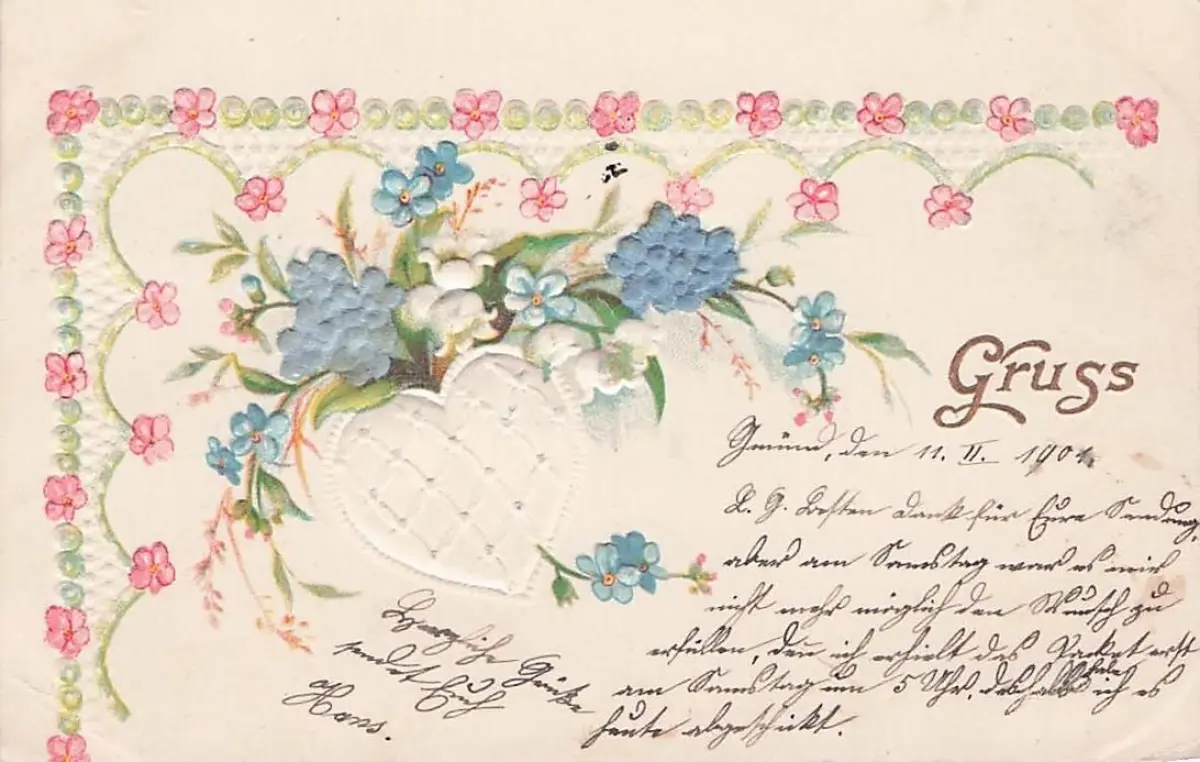 Gruss
Gmünd, den 11. II. 1901.
L. G. Besten Dank für Eure Sendung,
aber am Samstag war es mir
nicht mehr möglich den Wunsch zu
erfüllen, den ich erhielt das Packet erst
am Samstag um 5 Uhr, deshalb habe ich es
heute abgeschickt.
Herzliche Grüße
sendet Euch
Hans.